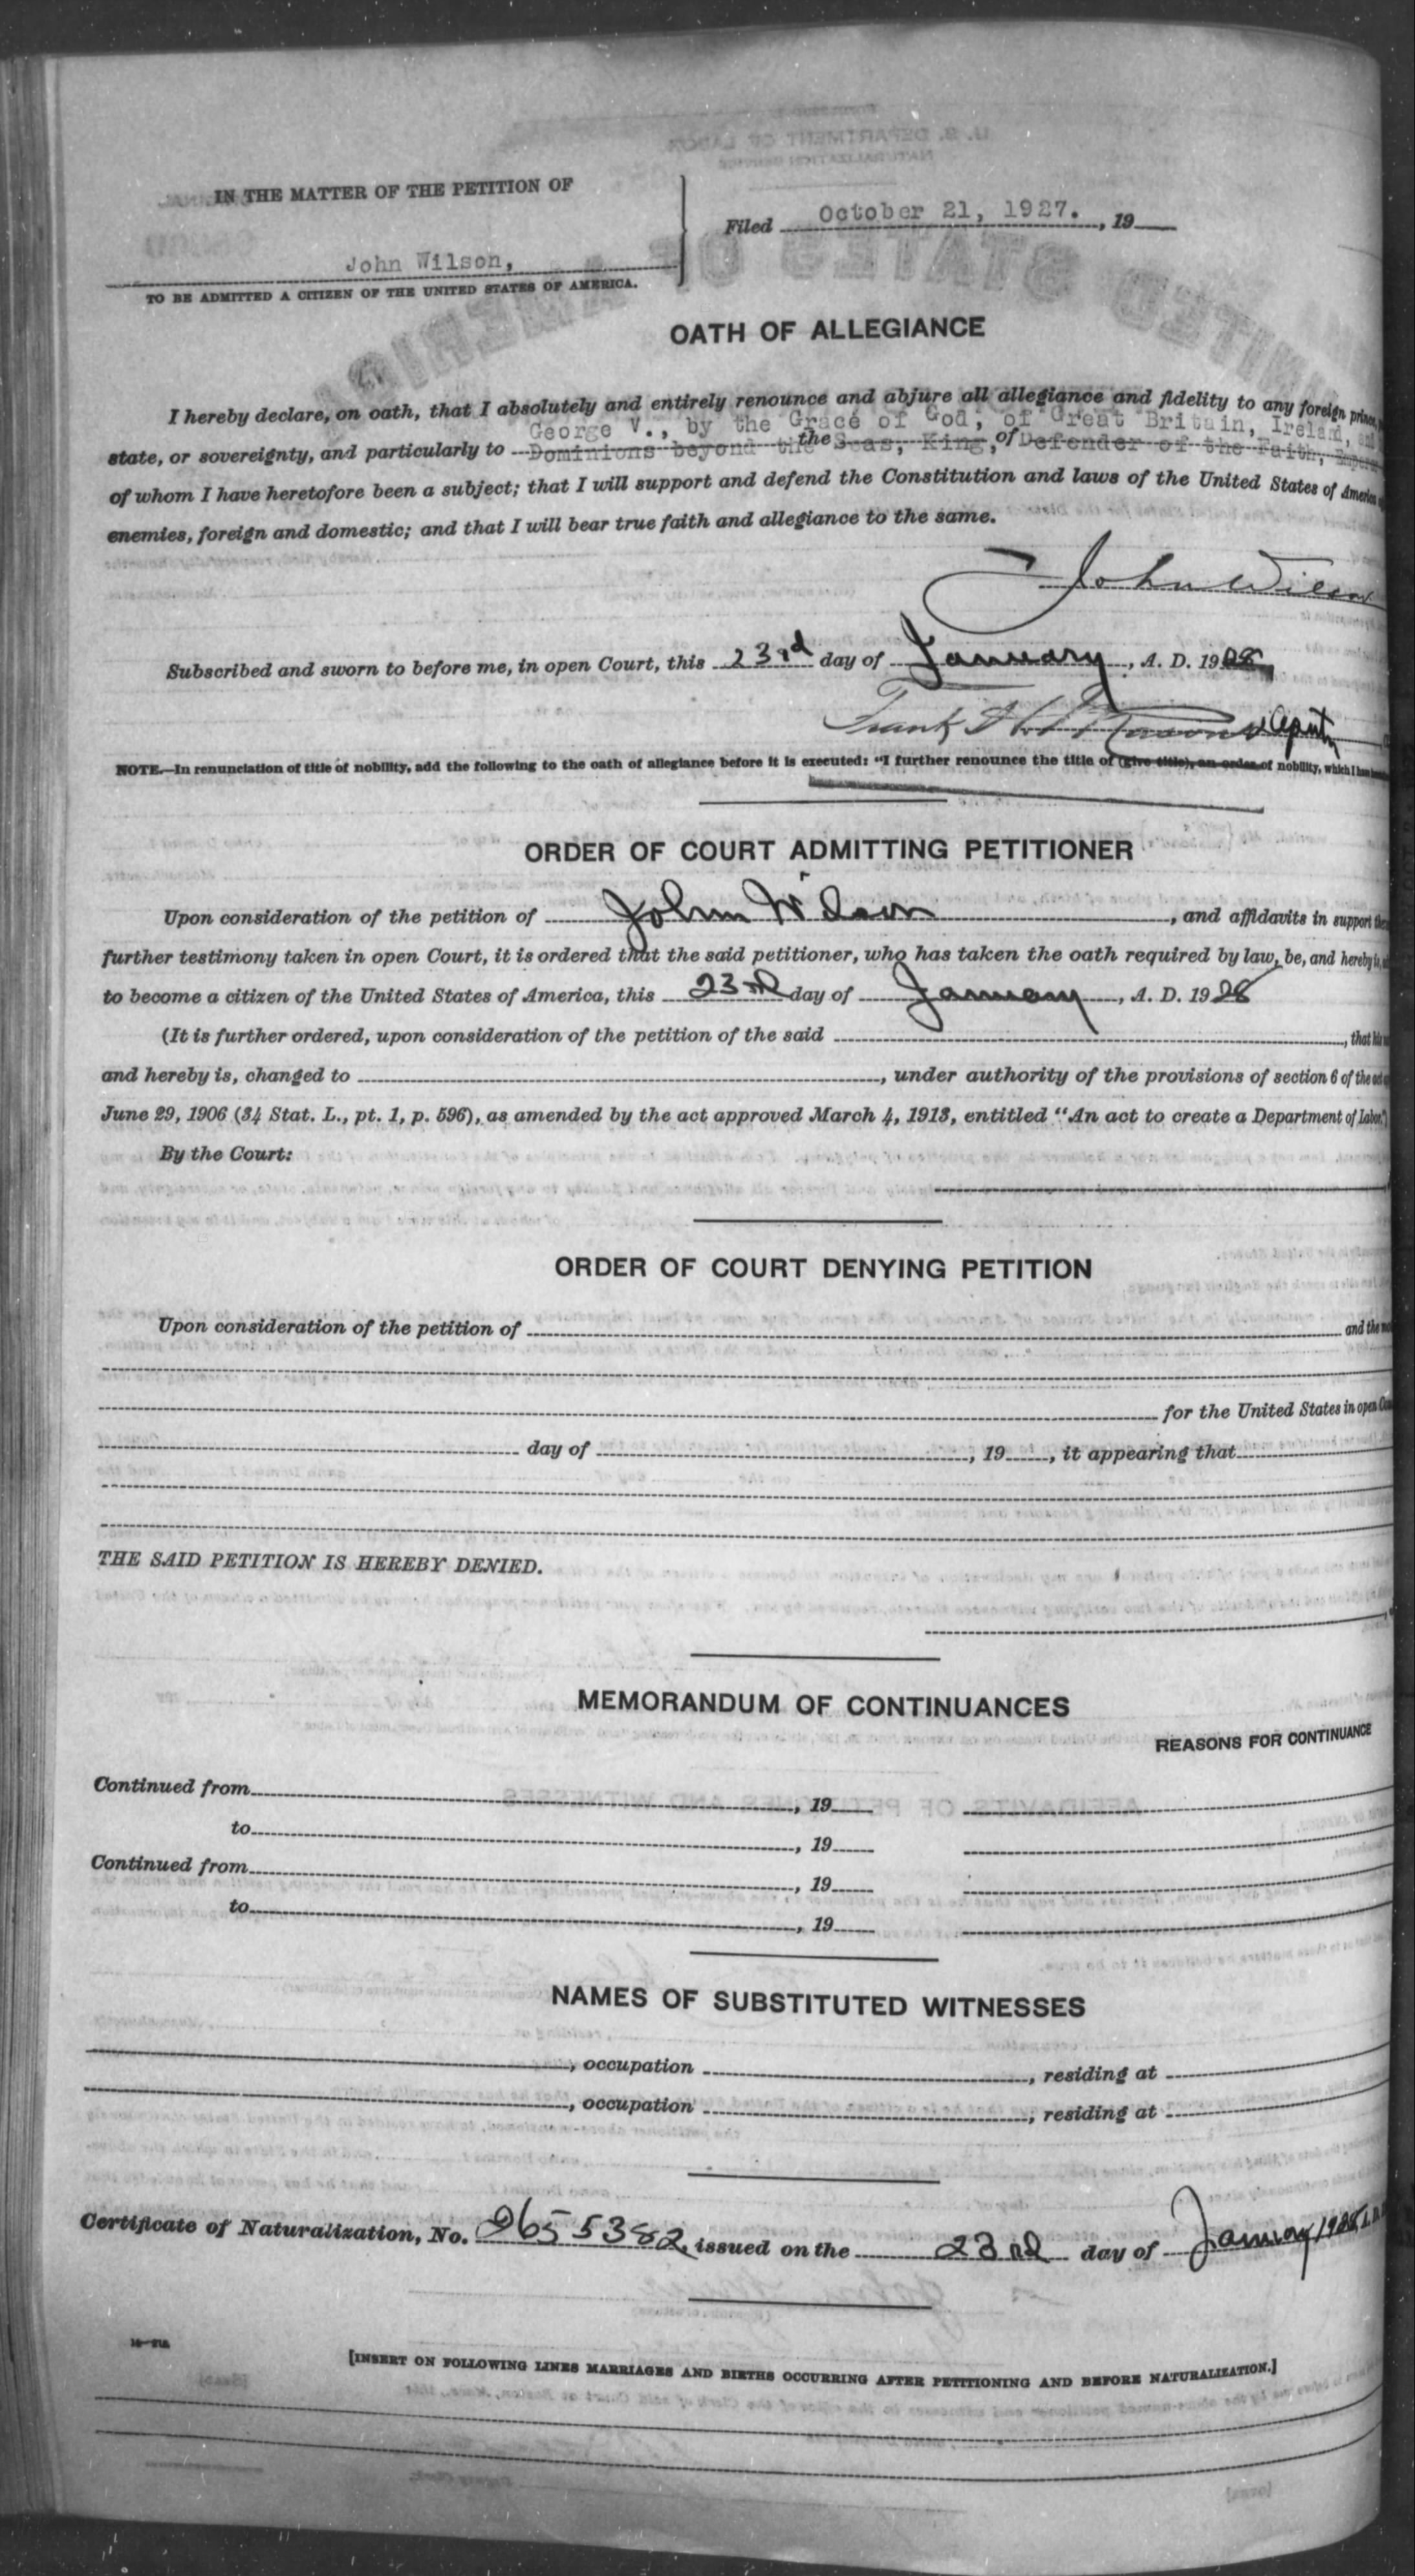 IN THE MATTER OF THE PETITION OF
Filed October 21, 1927. , 19
John Wilson,
TO BE ADMITTED A CITIZEN OF THE UNITED STATES OF AMERICA.
OATH OF ALLEGIANCE
I hereby declare, on oath, that I absolutely and entirely renounce and abjure all allegiance and fidelity to any foreign prince,
George V., by the Grace of God, of Great Britain, Ireland, and
state, or sovereignty, and particularly to Dominions beyond the the Seas, King, of Defender of the Faith, Emperor
of whom I have heretofore been a subject; that I will support and defend the Constitution and laws of the United States of America
enemies, foreign and domestic; and that I will bear true faith and allegiance to the same.
John Wilson
Subscribed and sworn to before me, in open Court, this 23rd day of January, A. D. 1928
Frank Deputy
NOTE.—In renunciation of title of nobility, add the following to the oath of allegiance before it is executed: "I further renounce the title of (give title), an order of nobility, which I have
ORDER OF COURT ADMITTING PETITIONER
Upon consideration of the petition of John Wilson, and affidavits in support
further testimony taken in open Court, it is ordered that the said petitioner, who has taken the oath required by law, be, and hereby is,
to become a citizen of the United States of America, this 23rd day of January, A. D. 1928
(It is further ordered, upon consideration of the petition of the said , that his
and hereby is, changed to , under authority of the provisions of section 6 of the act
June 29, 1906 (34 Stat. L., pt. 1, p. 596), as amended by the act approved March 4, 1913, entitled "An act to create a Department of Labor.")
By the Court:
ORDER OF COURT DENYING PETITION
Upon consideration of the petition of and the
for the United States in open
day of , 19 , it appearing that
THE SAID PETITION IS HEREBY DENIED.
MEMORANDUM OF CONTINUANCES
REASONS FOR CONTINUANCE
Continued from , 19
to , 19
Continued from , 19
to , 19
NAMES OF SUBSTITUTED WITNESSES
, occupation , residing at
, occupation , residing at
Certificate of Naturalization, No. 2655382, issued on the 23rd day of January 1928
[INSERT ON FOLLOWING LINES MARRIAGES AND BIRTHS OCCURRING AFTER PETITIONING AND BEFORE NATURALIZATION.]